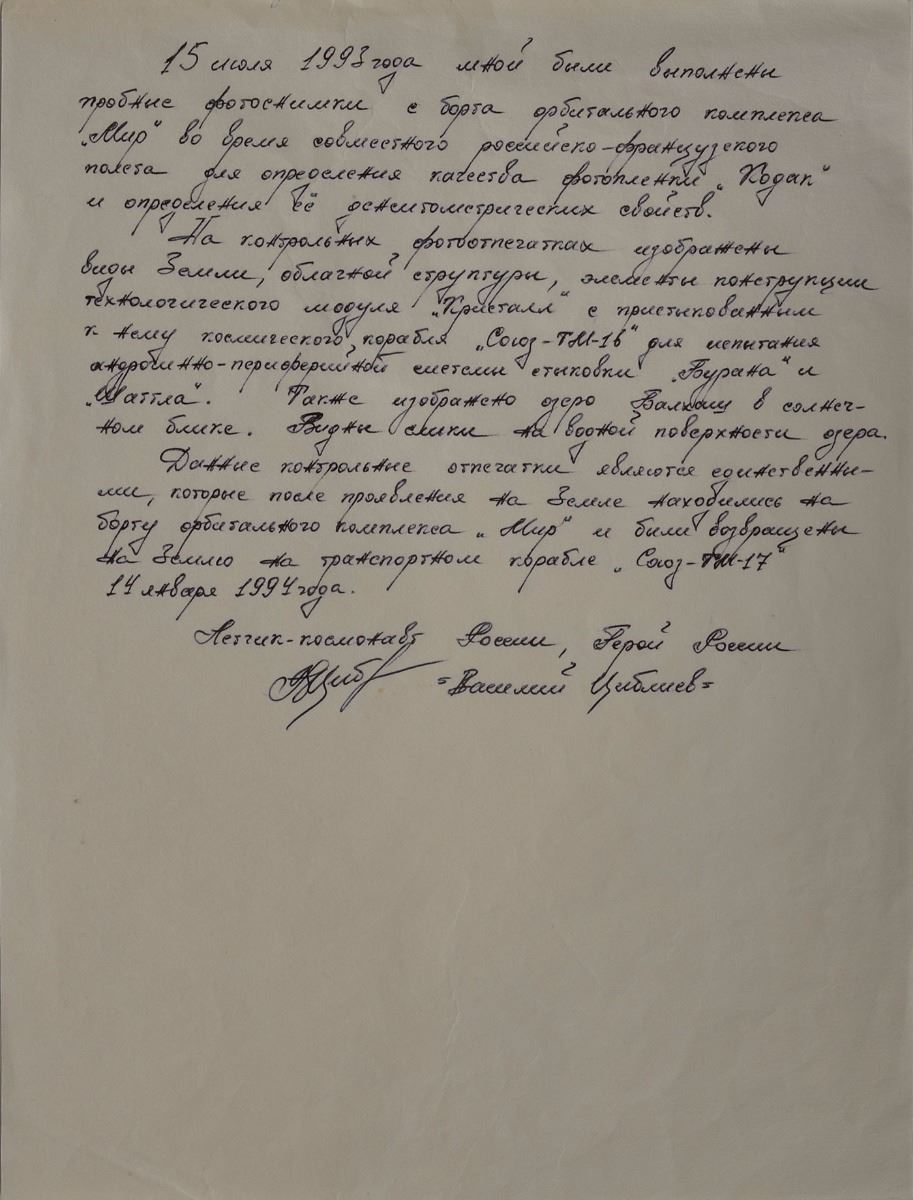 15 июля 1993 года мной были выполнены
пробные фотоснимки с борта орбитального комплекса
„Мир“ во время совместного российско-французского
полета для определения качества фотопленки „Кодак“
и определения её денситометрических свойств.
На контрольных фотоотпечатках изображены
виды Земли, облачной структуры, элементы конструкции
технологического модуля „Кристалл“ с пристыкованным
к нему космического корабля „Союз-ТМ-16“ для испытания
андрогинно-периферийной системы стыковки „Бурана“ и
„Шаттла“. Также изображено озеро Балхаш в солнеч-
ном блике. Видны слики на водной поверхности озера.
Данные контрольные отпечатки являются единственны-
ми, которые после проявления на Земле находились на
борту орбитального комплекса „Мир“ и были возвращены
на Землю на транспортном корабле „Союз-ТМ-17“
14 января 1994 года.
Летчик-космонавт России, Герой России
=Василий Циблиев=